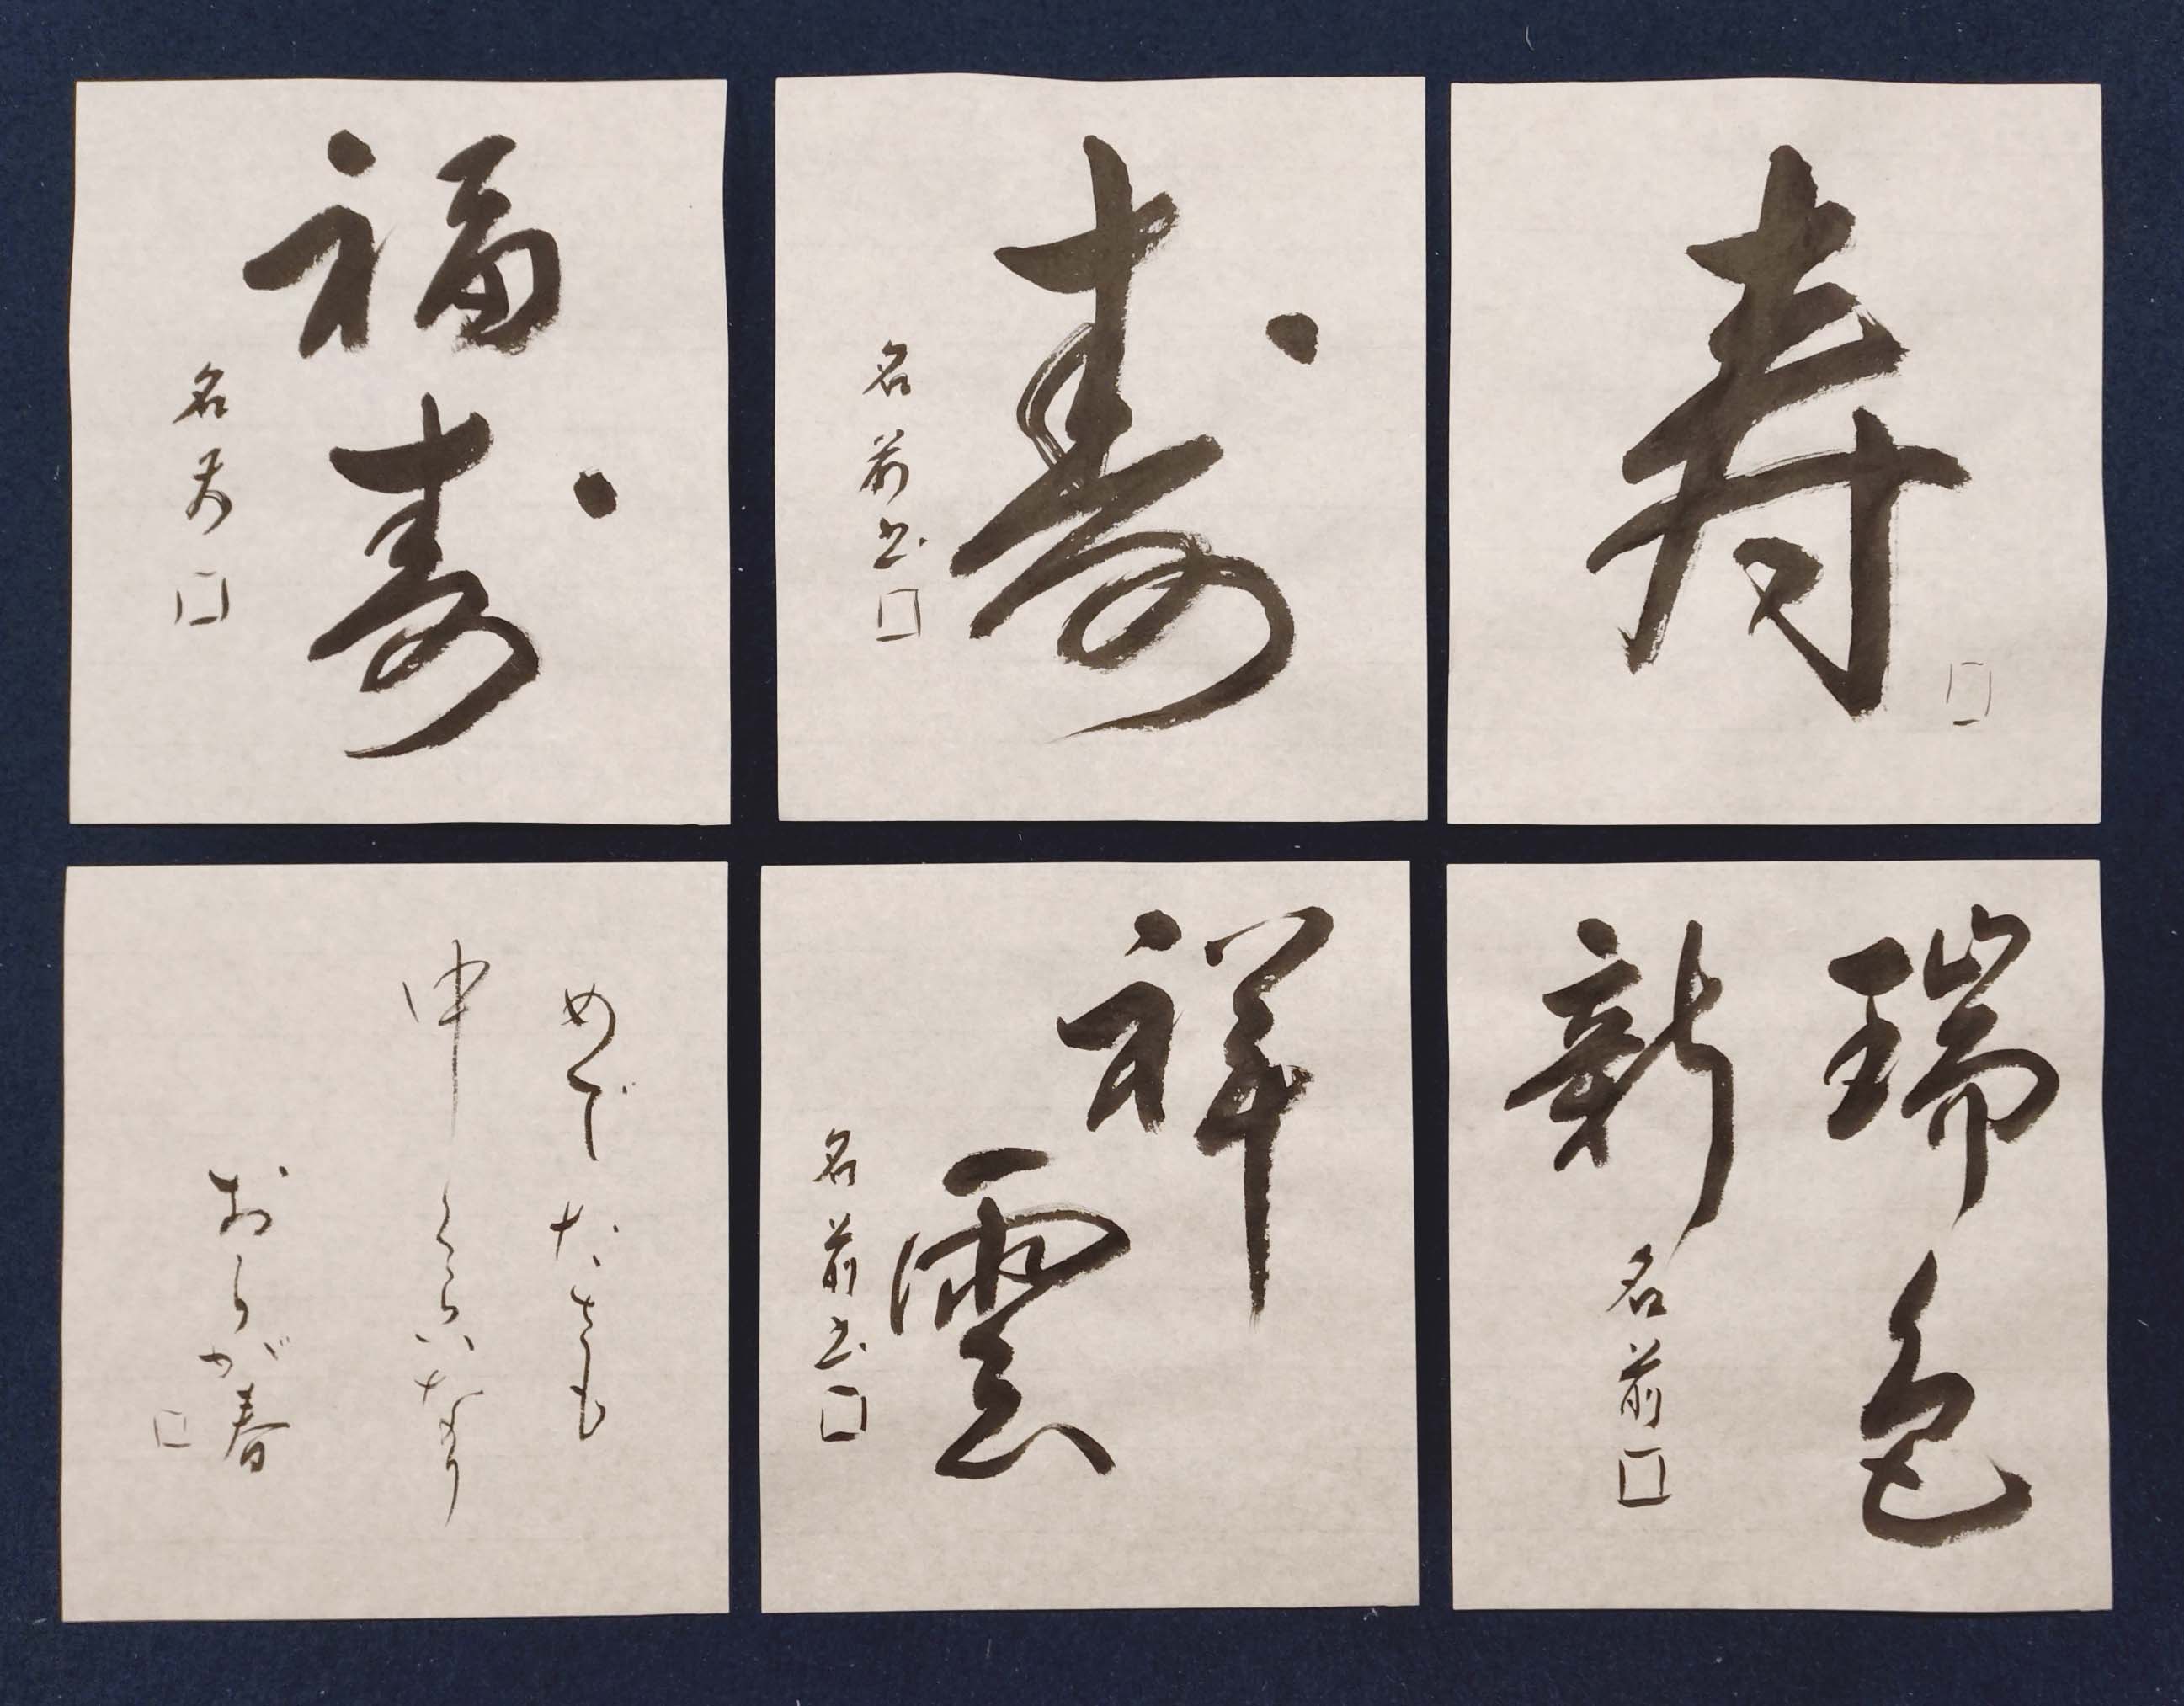 寿
寿
名前書
福寿
名前
瑞色
新
名前
祥雲
名前書
めでたさも
中くらいなり
おらが春